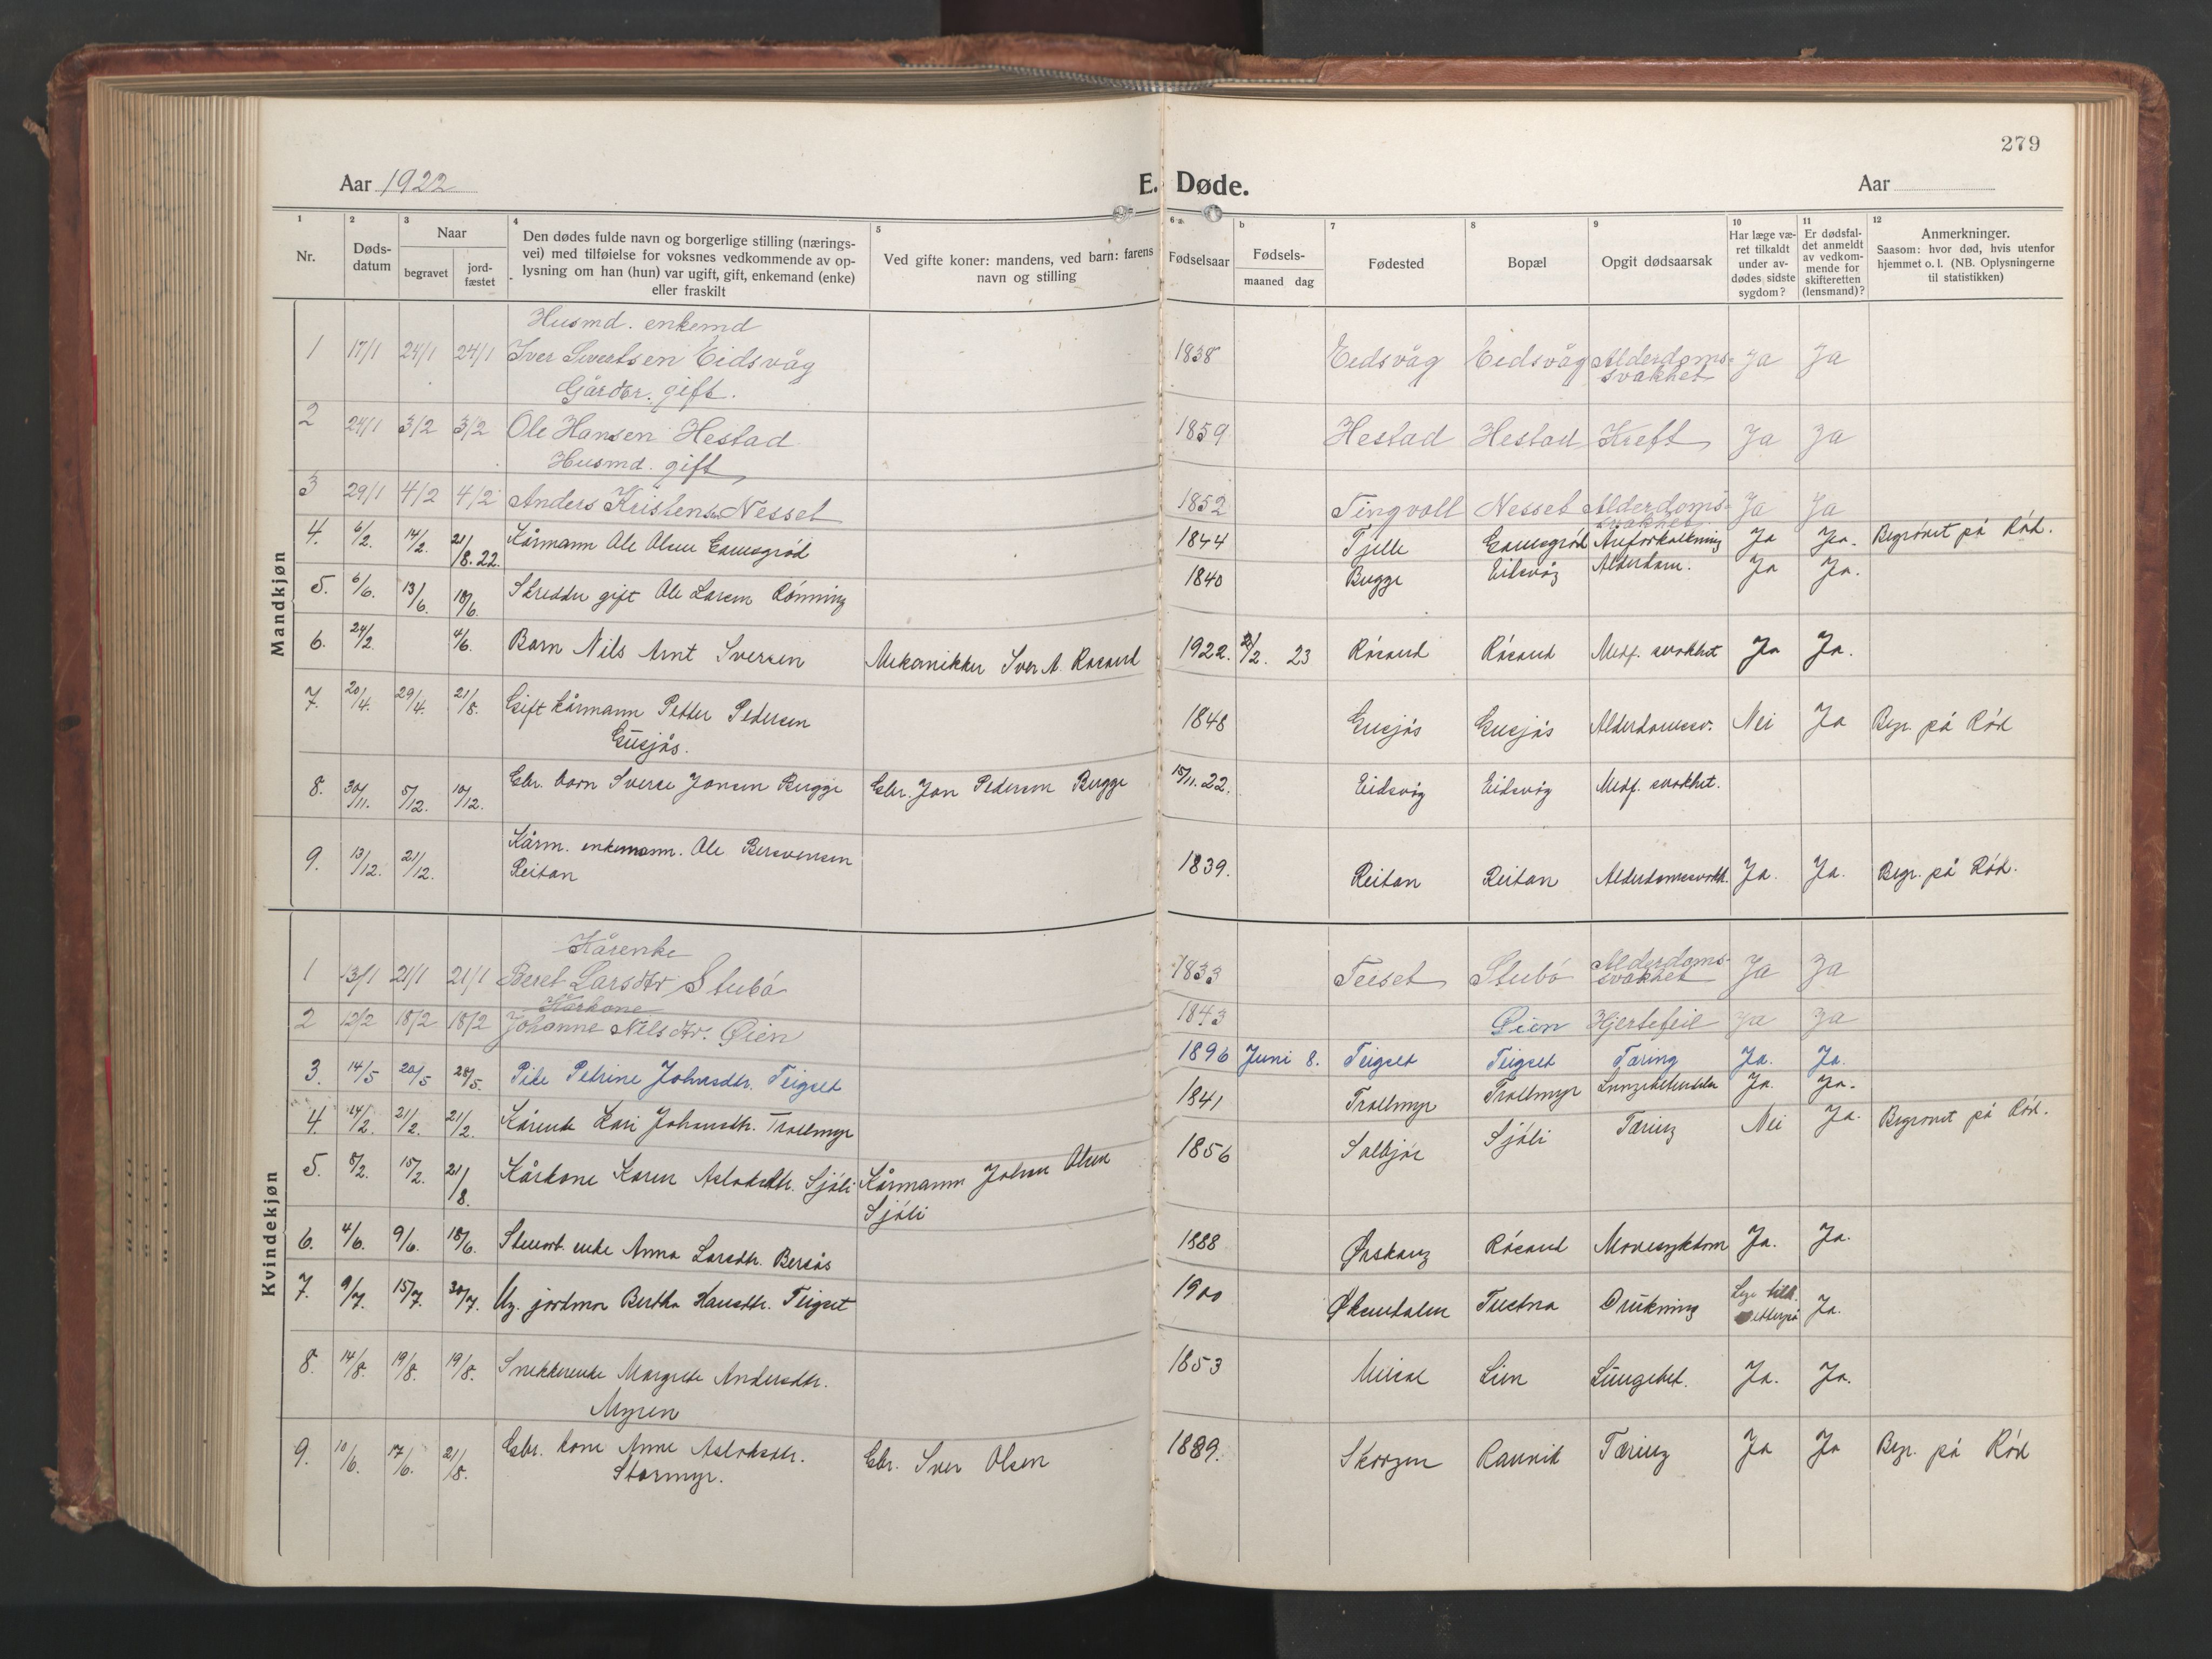 279
Aar 1922
E. Døde.
Aar
1 2 3 4 5 6 a. b 7 8 9 10 11 12
Nr.
Døds-
datum
Naar
begravet
jord-
fæstet
Den dødes fulde navn og borgerlige stilling (nærings-
vei) med tilføielse for voksnes vedkommende av op-
lysning om han (hun) var ugift, gift, enkemand (enke)
eller fraskilt
Ved gifte koner: mandens, ved barn: farens
navn og stilling
Fødselsaar
Fødsels-
maaned dag
Fødested
Bopæl
Opgit dødsaarsak
Har læge væ-
ret tilkaldt
under av-
dødes sidste
sygdom?
Er dødsfal-
det anmeldt
av vedkom-
mende for
skifteretten
(lensmand)?
Anmerkninger.
Saasom: hvor død, hvis utenfor
hjemmet o. l. (NB. Oplysningerne
til statistikken)
Mandkjøn
Husmd. enkemd
1 17/1 24/1 24/1 Iver Sivertsen Eidsvåg 1838 Eidsvåg Eidsvåg Alderdoms- Ja Ja
svakhet
Gårdbr. gift.
2 24/1 3/2 3/2 Ole Hansen Hestad 1859 Hestad Hestad Kreft Ja Ja
Husmd. gift
3 29/1 4/2 4/2 Anders Kristensen Nesset 1852 Tingvoll Nesset Alderdoms- Ja Ja
svakhet
4. 6/2. 14/2. 21/8.22. Kårmann Ole Olsen 1844 Tjelle Areforkalkning Ja Ja. Begravet på Rød.
5. 6/6. 13/6. 18/6. Skredder gift Ole Larsen Rønning 1840 Bugge Eidsvåg Alderdom. Ja Ja.
6. 24/2. 4/6. Barn Nils Arnt Iversen Mekanikker Iver A. Røsand 1922. 2/2. 23 Røsand Røsand Medf. svakhet Ja Ja.
7. 20/4. 29/4. 21/8. Gift kårmann Petter Pedersen 1848 Gusjås Gusjås Alderdomssv. Nei Ja Begr. på Rød
Gusjås.
8. 30/11. 5/12. 10/12. Gbr. barn Sverre Jansen Bugge Gbr. Jan Pedersen Bugge 15/11.22. Eidsvåg Eidsvåg Medf. svakhet.
9. 13/12. 21/12. Kårm. enkemann. Ole Bersvensen 1839. Reitan Reitan Alderdomssvakh. Ja. Ja. Begr. på Rød.
Reitan
Kvindekjøn
Kårenke
1 13/1 21/1 21/1 Beret Larsdtr Stubø 1833 Teeset Stubø Alderdoms- Ja Ja
svakhet
Kårkone
2 12/2 18/2 18/2 Johanne Nilsdtr. Øien 1843 Øien Hjertefeil Ja Ja
3. 14/5 20/5 28/5. Pike Petrine Johansdtr. Teigset 1896 Juni 8. Teigset Teigset Tæring Ja. Ja.
4. 14/2. 21/2. 21/2. Kårenke Kari Johansdtr. Trollmyr 1841 Trollmyr Trollmyr Ja. Ja.
5. 8/2. 15/2. 21/8. Kårkone Karen Aslaksdtr. Sjøli Kårmann Johan Olsen 1856 Solbjør Sjøli Tæring Nei Ja. Begravet på Rød.
Sjøli
6. 4/6. 9/6. 18/6. enke Anna Larsdtr. Bersås 1888 Ørskoug Røsand Mavesykdom Ja. Ja.
7. 9/7. 15/7. 30/7. Ug. jordmor Bertha Hansdtr. Teigset 1900 Øksendalen Tustna Drukning Læge tilk. Ja.
etterpå
8. 14/8. 19/8. 19/8. Snekkerenke Margrete Andersdtr. 1853 Lien Lungebet. Ja. Ja.
Myren
9. 10/6. 17/6. 21/8. Gbr. kone Anne Aslaksdtr. Gbr. Iver Olsen 1889. Skorgen Ranvik Tæring Ja Ja Begr. på Rød
Stormyr.